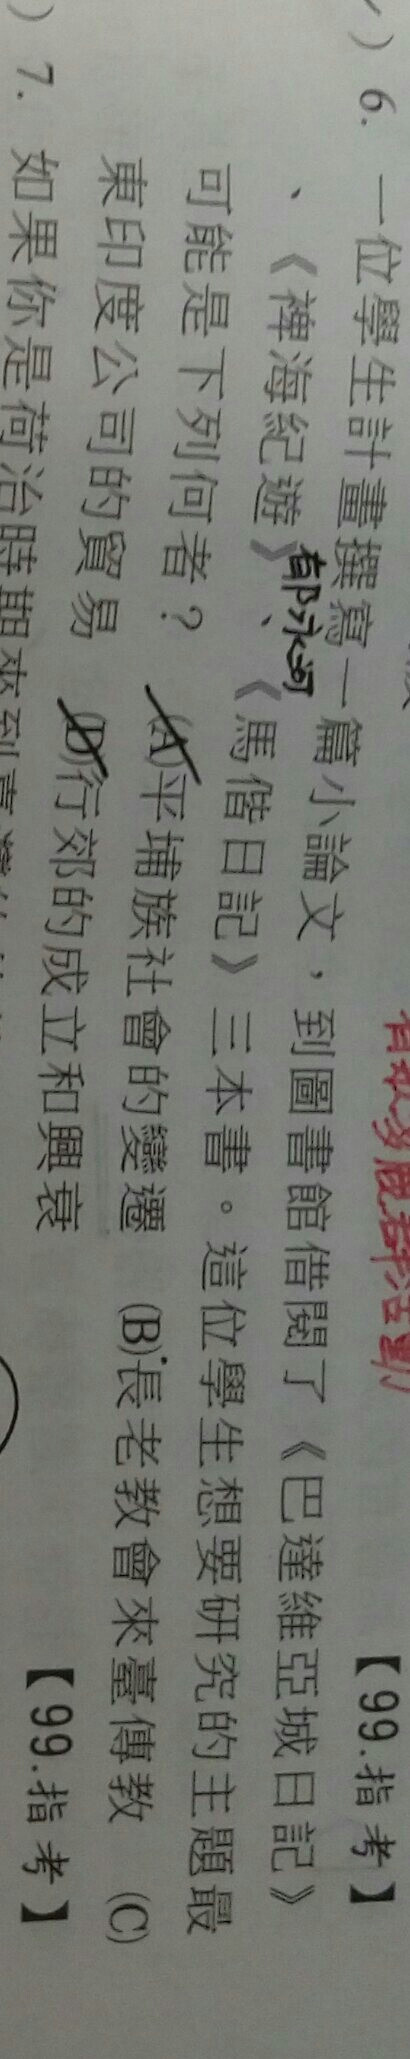 有許多鹿群活動
【99.指考】
) 6. 一位學生計畫撰寫一篇小論文，到圖書館借閱了《巴達維亞城日記》
、《裨海紀遊》、《馬偕日記》三本書。這位學生想要研究的主題最
郁永河
可能是下列何者？ (A)平埔族社會的變遷 (B)長老教會來臺傳教 (C)
東印度公司的貿易 (D)行郊的成立和興衰 【99.指考】
) 7. 如果你是荷治時期來到臺灣